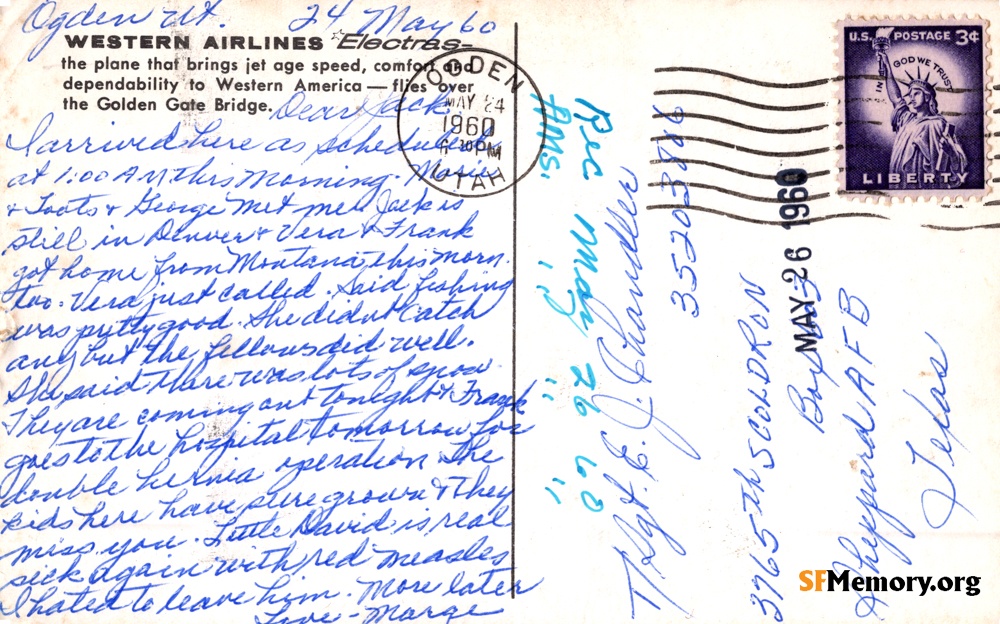 Ogden Ut. 24 May 60
WESTERN AIRLINES Electras—
the plane that brings jet age speed, comfort and
dependability to Western America — flies over
the Golden Gate Bridge.
Dear Jack
I arrived here as scheduled
at 1:00 AM this morning.
& Toots & George met me. Jack is
still in Denver & Vera & Frank
got home from Montana this morn.
too. Vera just called. Said fishing
was pretty good. She didn't catch
any but the fellows did well.
She said there was lots of snow.
They are coming out tonight & Frank
goes to the hospital tomorrow for
double hernia operation. The
kids here have sure grown & They
miss you. Little David is real
sick again with red measles
I hated to leave him. More later
Love - Marge
OGDEN
MAY 24
1960
PM
UTAH
U.S. POSTAGE 3¢
IN GOD WE TRUST
LIBERTY
Rec May 26 60
Ans. " " "
T/Sgt. E. J. Chandler
35203886
3765th SCOLDRON
Box
MAY 26 1960
Sheppard AFB
Texas
SFMemory.org